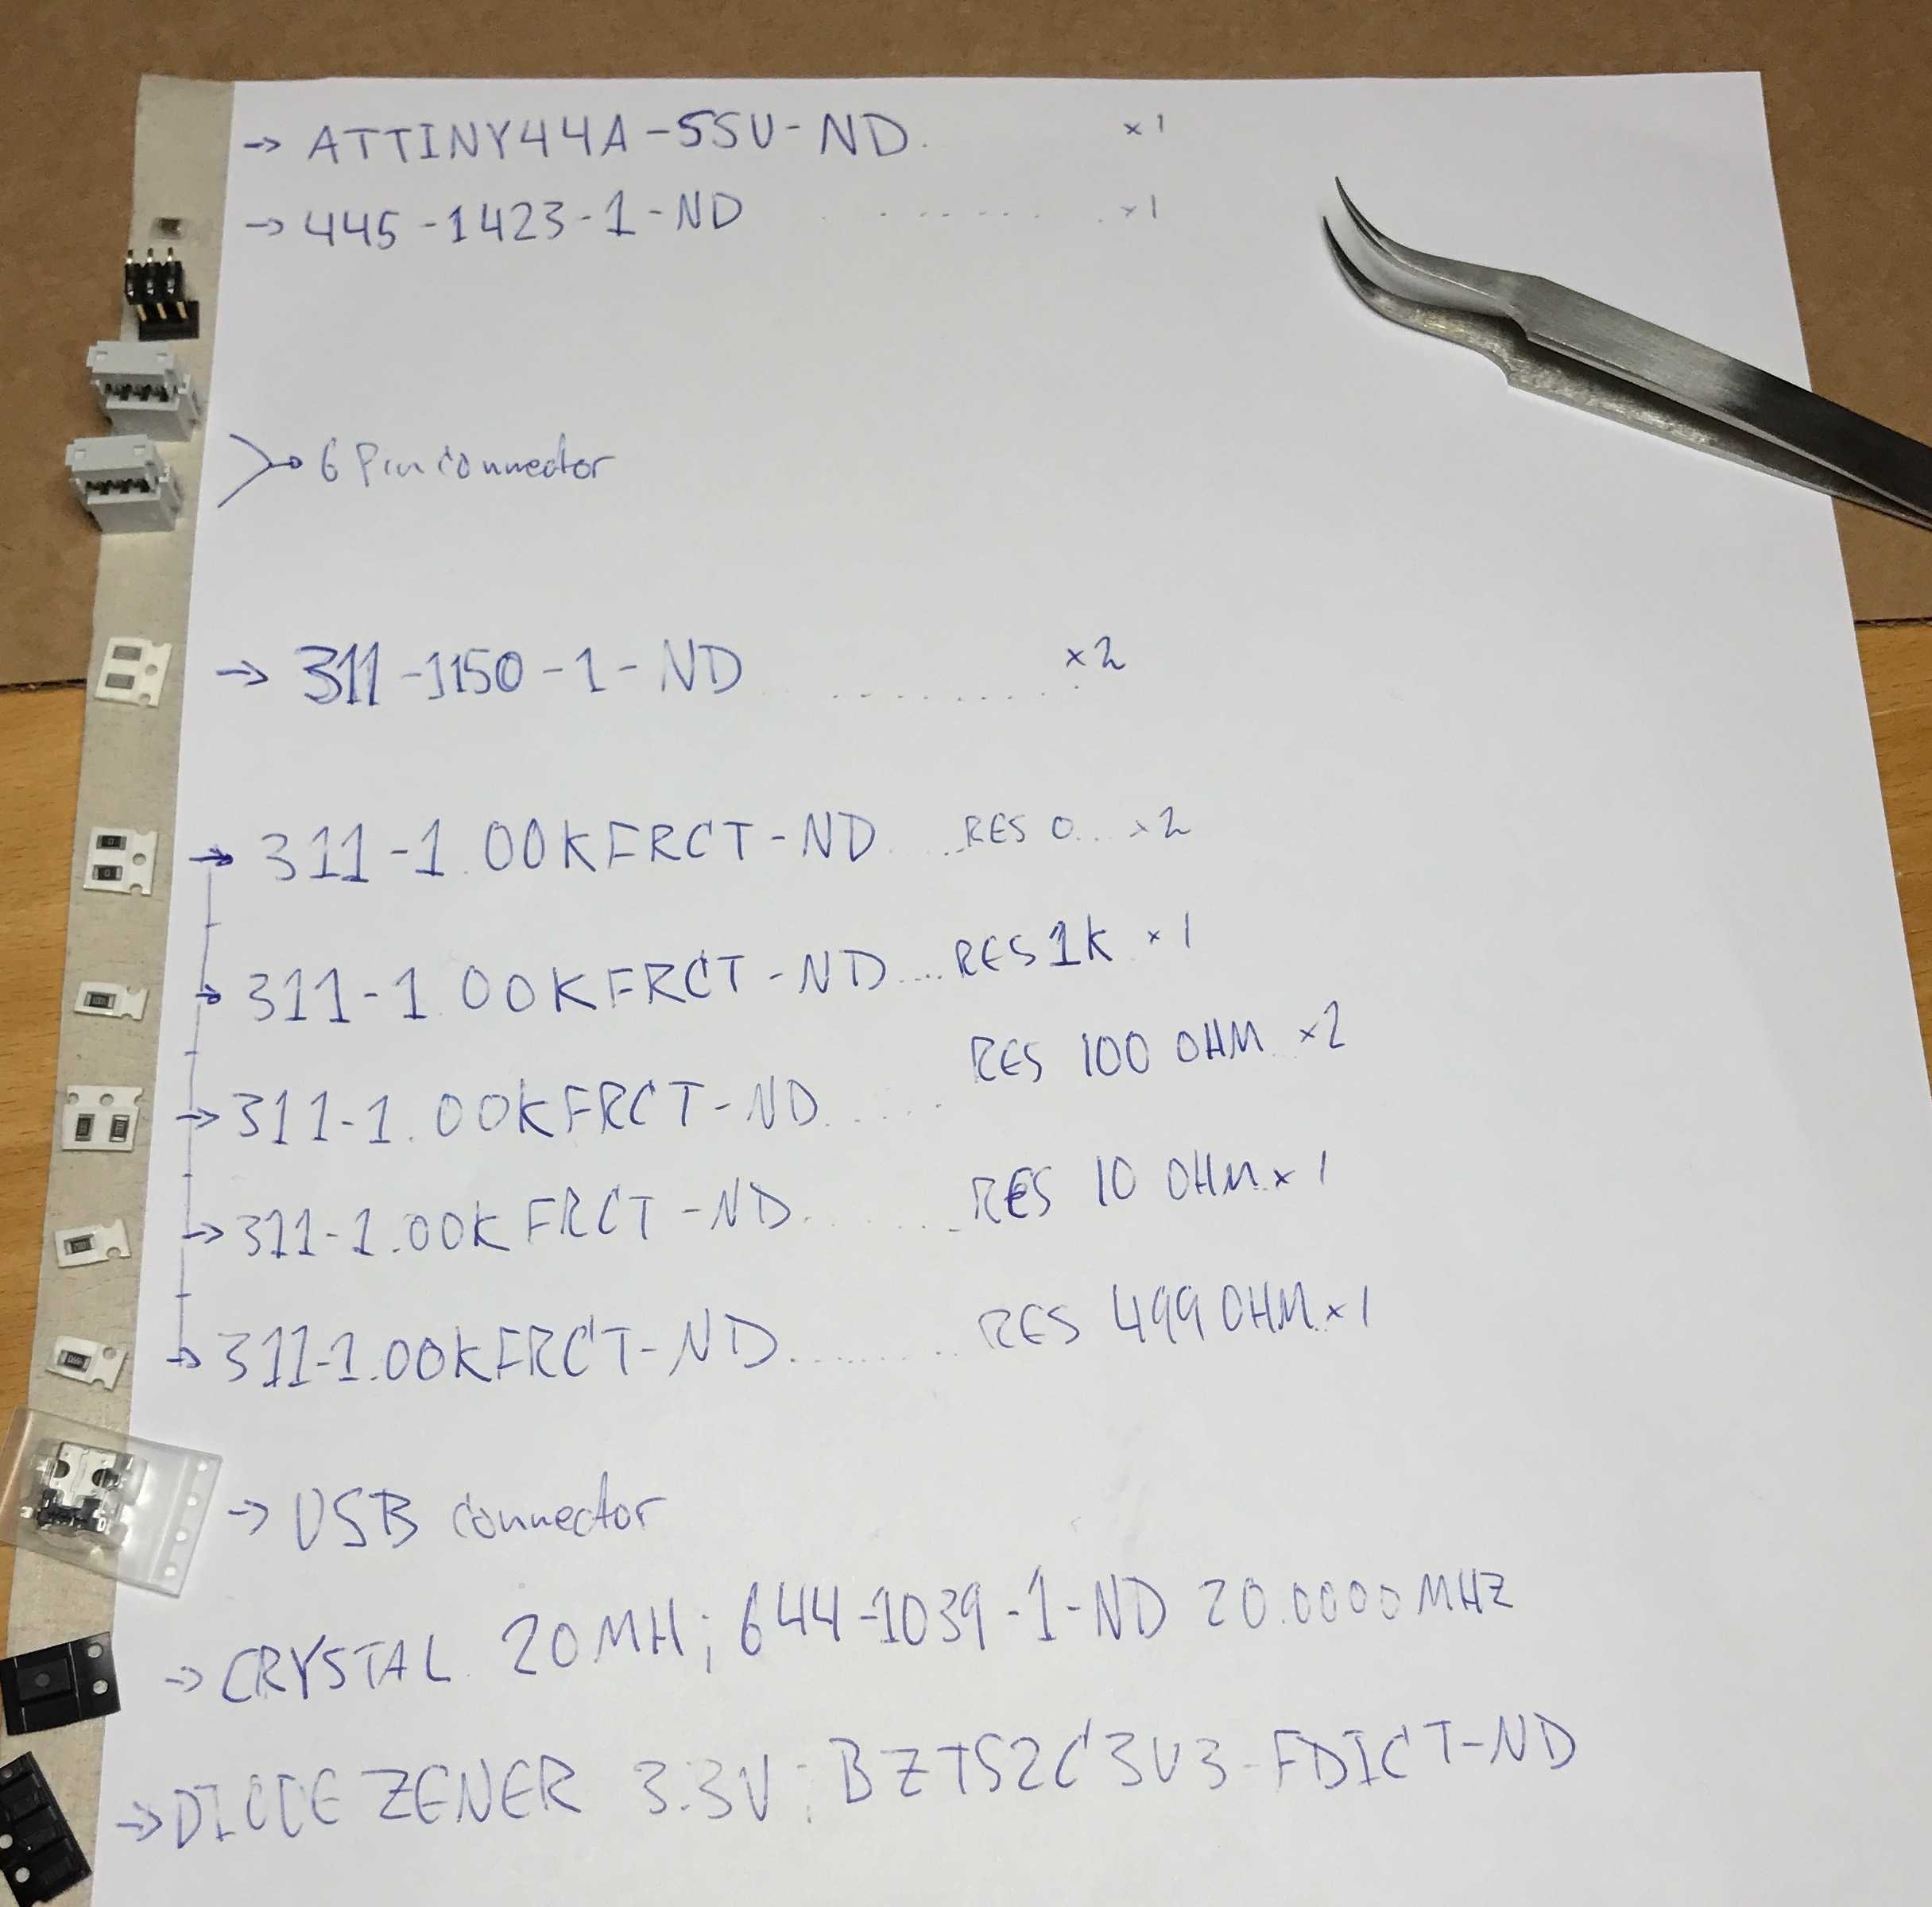 → ATTINY44A-SSU-ND. x1
→ 445-1423-1-ND ........ x1
6 Pin connector
→ 311-1150-1-ND ........ x2
→ 311-1.00KFRCT-ND ..... RES 0... x2
→ 311-1.00KFRCT-ND.... RES 1K x1
→ 311-1.00KFRCT-ND..... RES 100 OHM x2
→ 311-1.00KFRCT-ND....... RES 10 OHM x1
→ 311-1.00KFRCT-ND........ RES 499 OHM x1
→ USB connector
→ CRYSTAL 20MH; 644-1039-1-ND 20.0000MHZ
→ DIODE ZENER 3.3V; BZT52C3V3-FDICT-ND